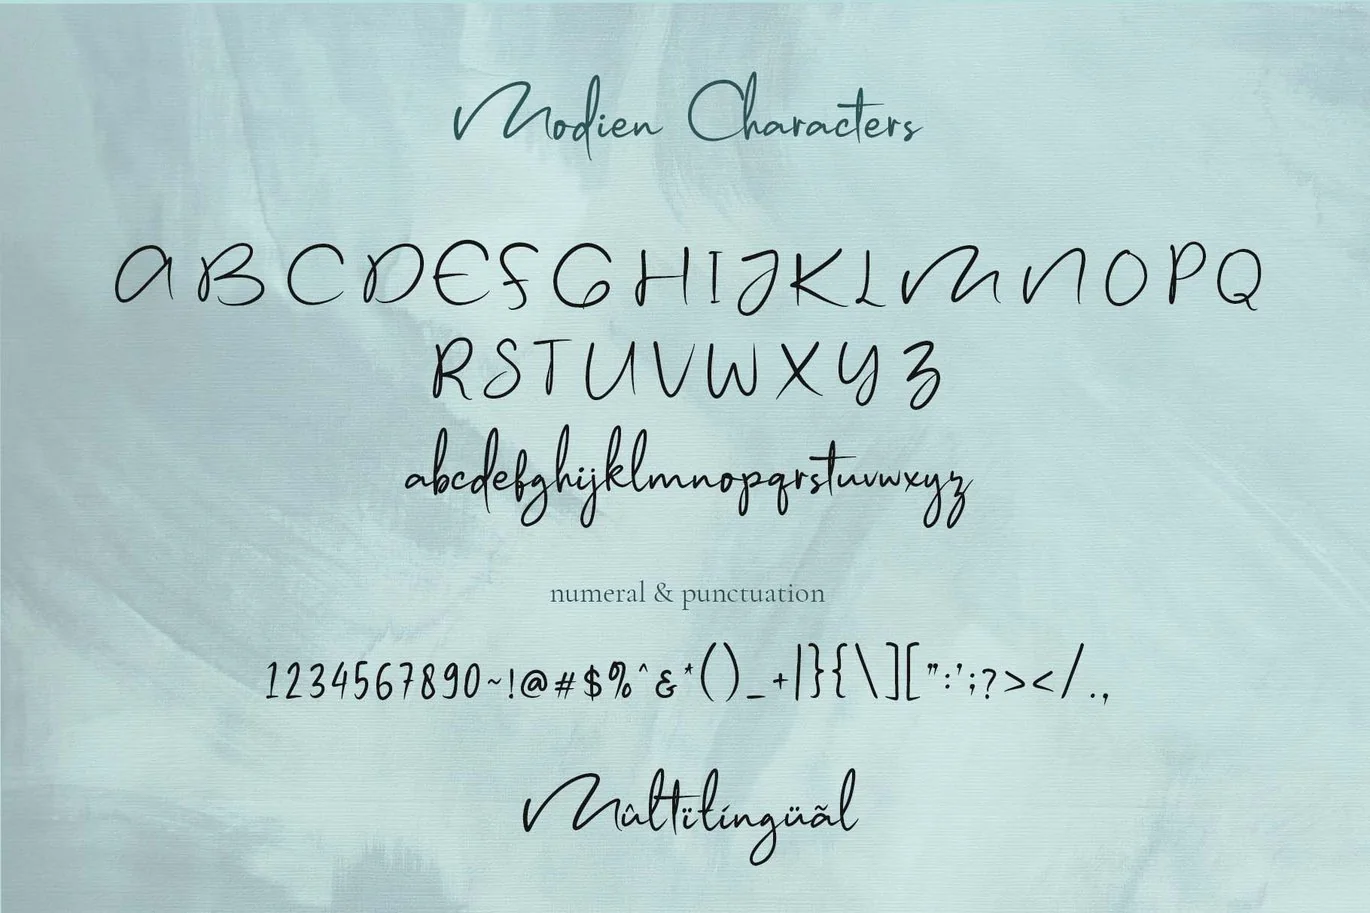 Modien Characters
ABCDEFGHIJKLMNOPQ
RSTUVWXYZ
abcdefghijklmnopqrstuvwxyz
numeral & punctuation
1234567890~!@#$%^&*()_+|}{\][":';?></.,
Mûltïlíngüãl